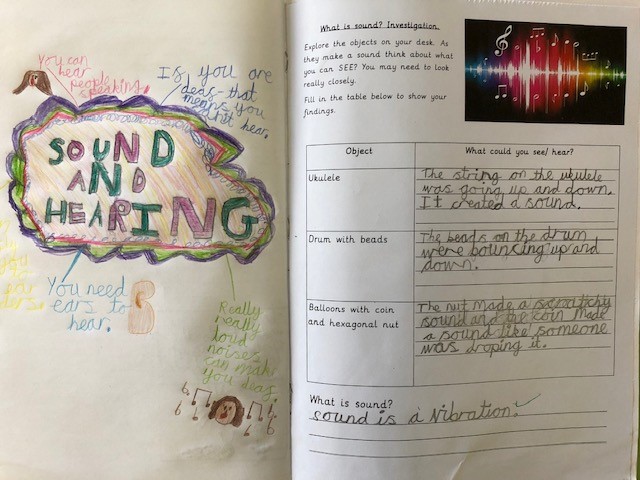 You can
hear
people
speaking.
If you are
deas that
means you
can't hear.
SOUND
AND
HEARING
You need
ears to
hear.
Really
really
loud
noises
can make
you deaf.
What is sound? Investigation
Explore the objects on your desk. As
they make a sound think about what
you can SEE? You may need to look
really closely.
Fill in the table below to show your
findings.
Object
What could you see/ hear?
Ukulele
The string on the ukulele
was going up and down.
It created a sound.
Drum with beads
The beads on the drum
were bouncing up and
down.
Balloons with coin
and hexagonal nut
The nut made a scratchy
sound and the coin made
a sound like someone
was droping it.
What is sound?
Sound is a vibration.